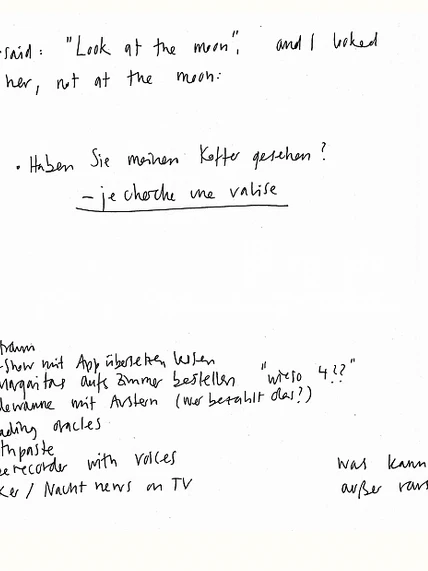 said: "Look at the moon", and I looked
her, not at the moon.
• Haben Sie meinen Koffer gesehen?
– je cherche une valise
-show mit App übersetzen lassen
Margaritas aufs Zimmer bestellen "wieso 4??"
dewanne mit Austern (wer bezahlt das?)
ading oracles
thpaste
recorder with voices
/ Nacht news on TV
was kann
außer